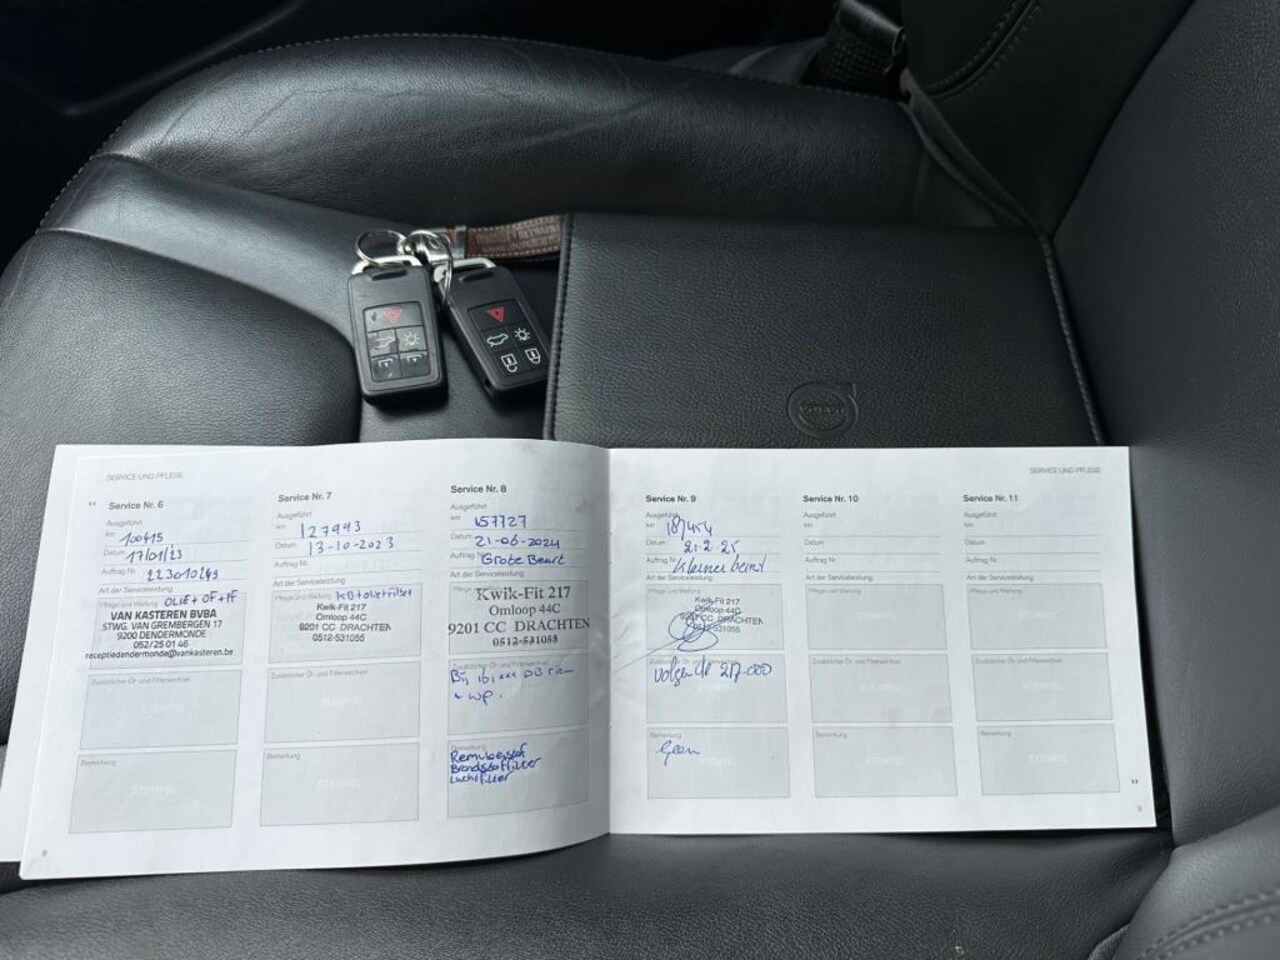 VOLVO
SERVICE UND PFLEGE
Service Nr. 6
Ausgeführt
km 100415
Datum 17/01/23
Auftrag Nr.
Art der Serviceleistung
Pflege und Wartung OLIE + OF + PF
VAN KASTEREN BVBA
STWG. VAN GREMBERGEN 17
9200 DENDERMONDE
052/25 01 46
receptiedendermonde@vankasteren.be
Zusätzlicher Öl- und Filterwechsel
STEMPEL
Bemerkung
STEMPEL
Service Nr. 7
Ausgeführt
km 127993
Datum 13-10-2023
Auftrag Nr.
Art der Serviceleistung
Pflege und Wartung
Kwik-Fit 217
Omloop 44C
9201 CC DRACHTEN
0512-531055
Zusätzlicher Öl- und Filterwechsel
STEMPEL
Bemerkung
STEMPEL
Service Nr. 8
Ausgeführt
km 157727
Datum 21-06-2024
Auftrag Nr. Grote Beurt
Art der Serviceleistung
Kwik-Fit 217
Omloop 44C
9201 CC DRACHTEN
0512-531055
Zusätzlicher Öl- und Filterwechsel
+ WP.
Bemerkung
Brandstoffilter
Luchtfilter
SERVICE UND PFLEGE
Service Nr. 9
Ausgeführt
km
Datum 21-2-25
Auftrag Nr. Kleine beurt
Art der Serviceleistung
Kwik-Fit 217
Omloop 44C
9201 CC DRACHTEN
0512-531055
Zusätzlicher Öl- und Filterwechsel
217.000
Bemerkung
Geen
STEMPEL
Service Nr. 10
Ausgeführt
km
Datum
Auftrag Nr.
Art der Serviceleistung
Pflege und Wartung
Zusätzlicher Öl- und Filterwechsel
STEMPEL
Bemerkung
STEMPEL
Service Nr. 11
Ausgeführt
km
Datum
Auftrag Nr.
Art der Serviceleistung
Pflege und Wartung
Zusätzlicher Öl- und Filterwechsel
STEMPEL
Bemerkung
STEMPEL